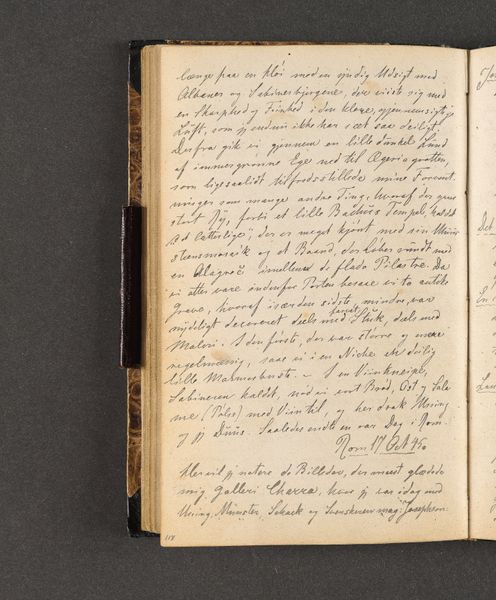 længe paa en Høi med en yndig Udsigt mod
Albaner og Sabinerbjergene, der viiste sig med
en Skarphed og Fiinhed i den klare, gjennemsigtige
Luft, som jeg endnu ikke har seet saa deiligt.
Derfra gik vi gjennem en lille dunkel Lund
af immergrønne Ege ned til Ageriagrotten,
som ligesaalidt tilfredsstillede mine Forvent-
ninger som mange andre Ting, hvoraf der gaaer
stort Ry, forbi et lille Bachus Tempel, kaldt
der er meget kjønt med sin Muur-
steensmosaik og et Baand, der løber rundt med
en Alagrec imellem de flade Pilastre. Da
vi atter vare indenfor Porten besaae vi to antike
Grave, hvoraf især den sidste, mindre, var
nydeligt decoreret deels med farvet Stuk, deels med
Maleri. I den første, der var større og mere
regelmæssig, saae vi i en Niche en deilig
lille Marmorbuste. – I en Viinkneipe,
Sabineren kaldt, nød vi vort Brød, Ost og Sala
me (Pølse) med Viin til, og her drak Ussing
og jeg Duus. Saaledes endte en rar Dag i Rom.
Rom 17 Oct 45.
Her vil jeg notere de Billeder, der meest glædede
mig. Galleri Charra, hvor jeg var idag med
Ussing, Münster, Schack og Svenskeren mag: Josephson.
118